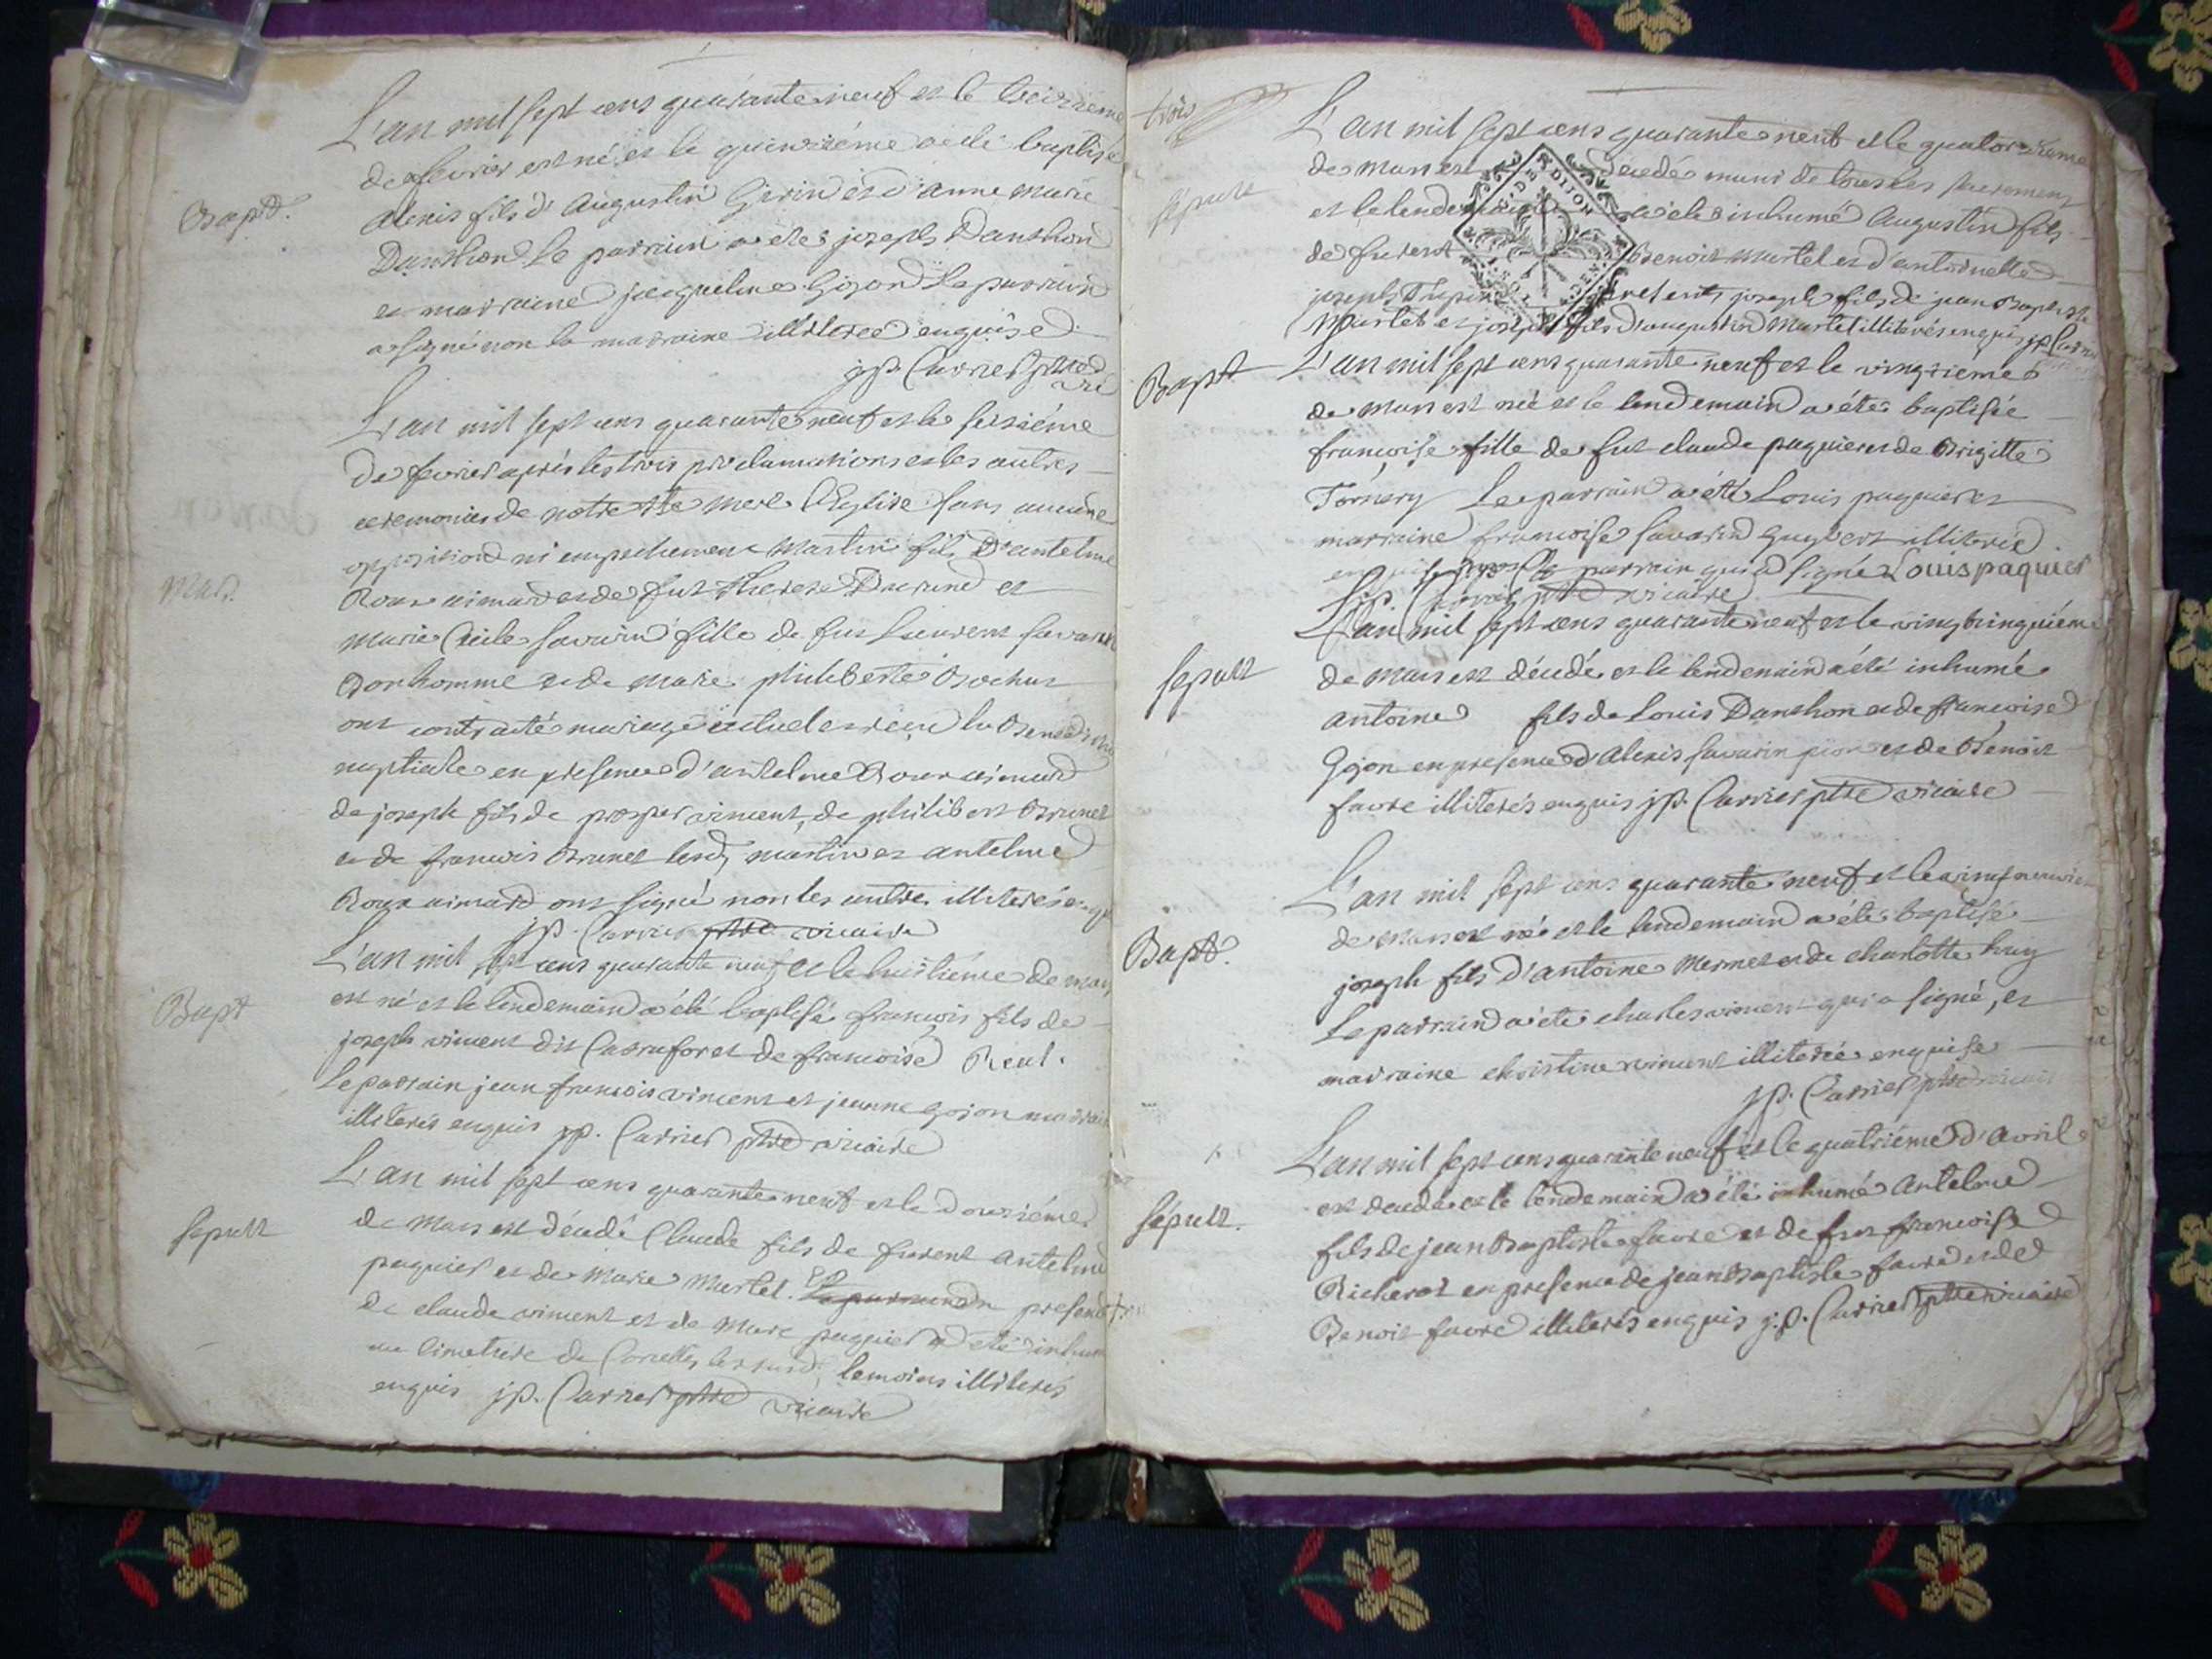 L'an mil sept cens quarante neuf et le treizieme
de fevrier est né et le quinzième a eté baptisé
Bapt.
alexis fils d'Augustin Girin et d'anne marie
Danthon le parrain a eté joseph Danthon
et marraine jacqueline Gojon le parrain
a signé non la marraine illiterée enquise
jp. Carrier ptre
vre
L'an mil sept cens quarante neuf et le seizième
de fevrier après les trois proclamations et les autres
ceremonies de notre ste mere l'Eglise sans aucune
opposition ni empechement Martin fils d'antelme
Mar.
Roux aimard et de fut therese et
marie Cecile savarin fille de fut savarin
bonhomme et de marie philiberte Bochut
ont contracté mariage et reçu la Benediction
nuptiale en presence d'antelme Roux aimard
de joseph fils de prosper vincent, de philibert Brunet
et de francois Brunet lesd. martin et antelme
Roux aimard ont signé non les autres illiterés
jp. Carrier ptre vicaire
L'an mil sept cens quarante neuf et le huitième de mars
Bapt
est né et le lendemain a été baptisé francois fils de
joseph vincent dit et de francoise Real.
Le parrain jean francois vincent et jeanne Gojon marraine
illiterés enquis jp. Carrier ptre vicaire
L'an mil sept cens quarante neuf et le douzième
sepult
de Mars est décédé Claude fils de furent antelme
paquier et de Marie Martel. presence
de claude vincent et de Marc paquier a eté inhumé
au Cimetiere de temoins illiterés
enquis jp. Carrier ptre vicaire
trois
L'an mil sept cens quarante neuf et le quatorzieme
de Mars est decedé muni de tous les sacremens
sepult
et le lendemain a eté inhumé Augustin fils
DE DIJON
de furent Benoit Martel et d'antoinette
joseph joseph fils de jean Baptiste
Martel et joseph fils d'augustin Martel illiterés enquis jp. Carrier
Bapt
L'an mil sept cens quarante neuf et le vingtieme
de Mars est née et le lendemain a été baptisée
francoise fille de fut claude paquier et de Brigitte
Tornery Le parrain a été Louis paquier et
marraine francoise savarin illiterée
enquise le parrain qui a signé Louis paquier
jp. Carrier ptre vicaire
L'an mil sept cens quarante neuf et le vingtcinquième
sepult
de Mars est décédé et le lendemain a été inhumé
antoine fils de Louis Danthon et de francoise
Gojon en presence d'alexis savarin et de Benoit
favre illiterés enquis jp. Carrier ptre vicaire
L'an mil sept cens quarante neuf et le vingt neuvieme
Bapt.
de Mars est né et le lendemain a été baptisé
joseph fils d'antoine Mermet et de charlotte
Le parrain a été charles vincent qui a signé, et
marraine christine vincent illiterée enquise
jp. Carrier ptre vicaire
L'an mil sept cens quarante neuf et le quatrième d'avril
sépult.
est decedé et le lendemain a été inhumé antelme
fils de jean Baptiste favre et de fut francoise
Richerot en presence de jean Baptiste favre et de
Benoit favre illiterés enquis j.p. Carrier ptre vicaire